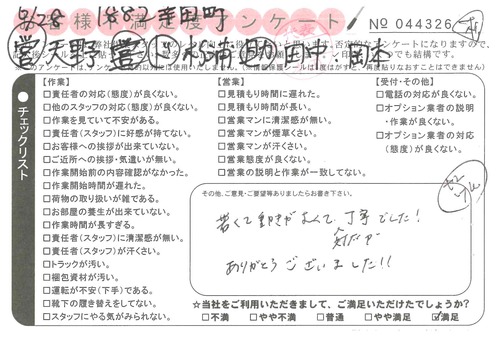 5/28 1882 幸田町
お客様満足度アンケート No 044326
チェックリスト
【作業】
□責任者の対応(態度)が良くない。
□他のスタッフの対応(態度)が良くない。
□作業を見ていて不安がある。
□責任者(スタッフ)に好感が持てない。
□お客様への挨拶が出来ていない。
□ご近所への挨拶・気遣いが無い。
□作業開始前の内容確認がなかった。
□作業開始時間が遅れた。
□荷物の取り扱いが雑である。
□お部屋の養生が出来ていない。
□作業時間が長すぎる。
□責任者(スタッフ)に清潔感が無い。
□責任者(スタッフ)が汗くさい。
□トラックが汚い。
□梱包資材が汚い。
□運転が不安(下手)である。
□靴下の履き替えをしてない。
□スタッフにやる気がみられない。
【営業】
□見積もり時間に遅れた。
□見積もり時間が長い。
□営業マンに清潔感が無い。
□営業マンが煙草くさい。
□営業マンが汗くさい。
□営業態度が良くない。
□営業の説明と作業が一致してない。
【受付・その他】
□電話の対応が良くない。
□オプション業者の説明
・作業が良くない。
□オプション業者の対応
(態度)が良くない。
その他、ご意見・ご要望等ありましたらお書き下さい。
若くて動きがよくて、丁寧でした!
気だてが
ありがとうございました!!
☆当社をご利用いただきまして、ご満足いただけたでしょうか?
□不満 □やや不満 □普通 □やや満足 ☑満足